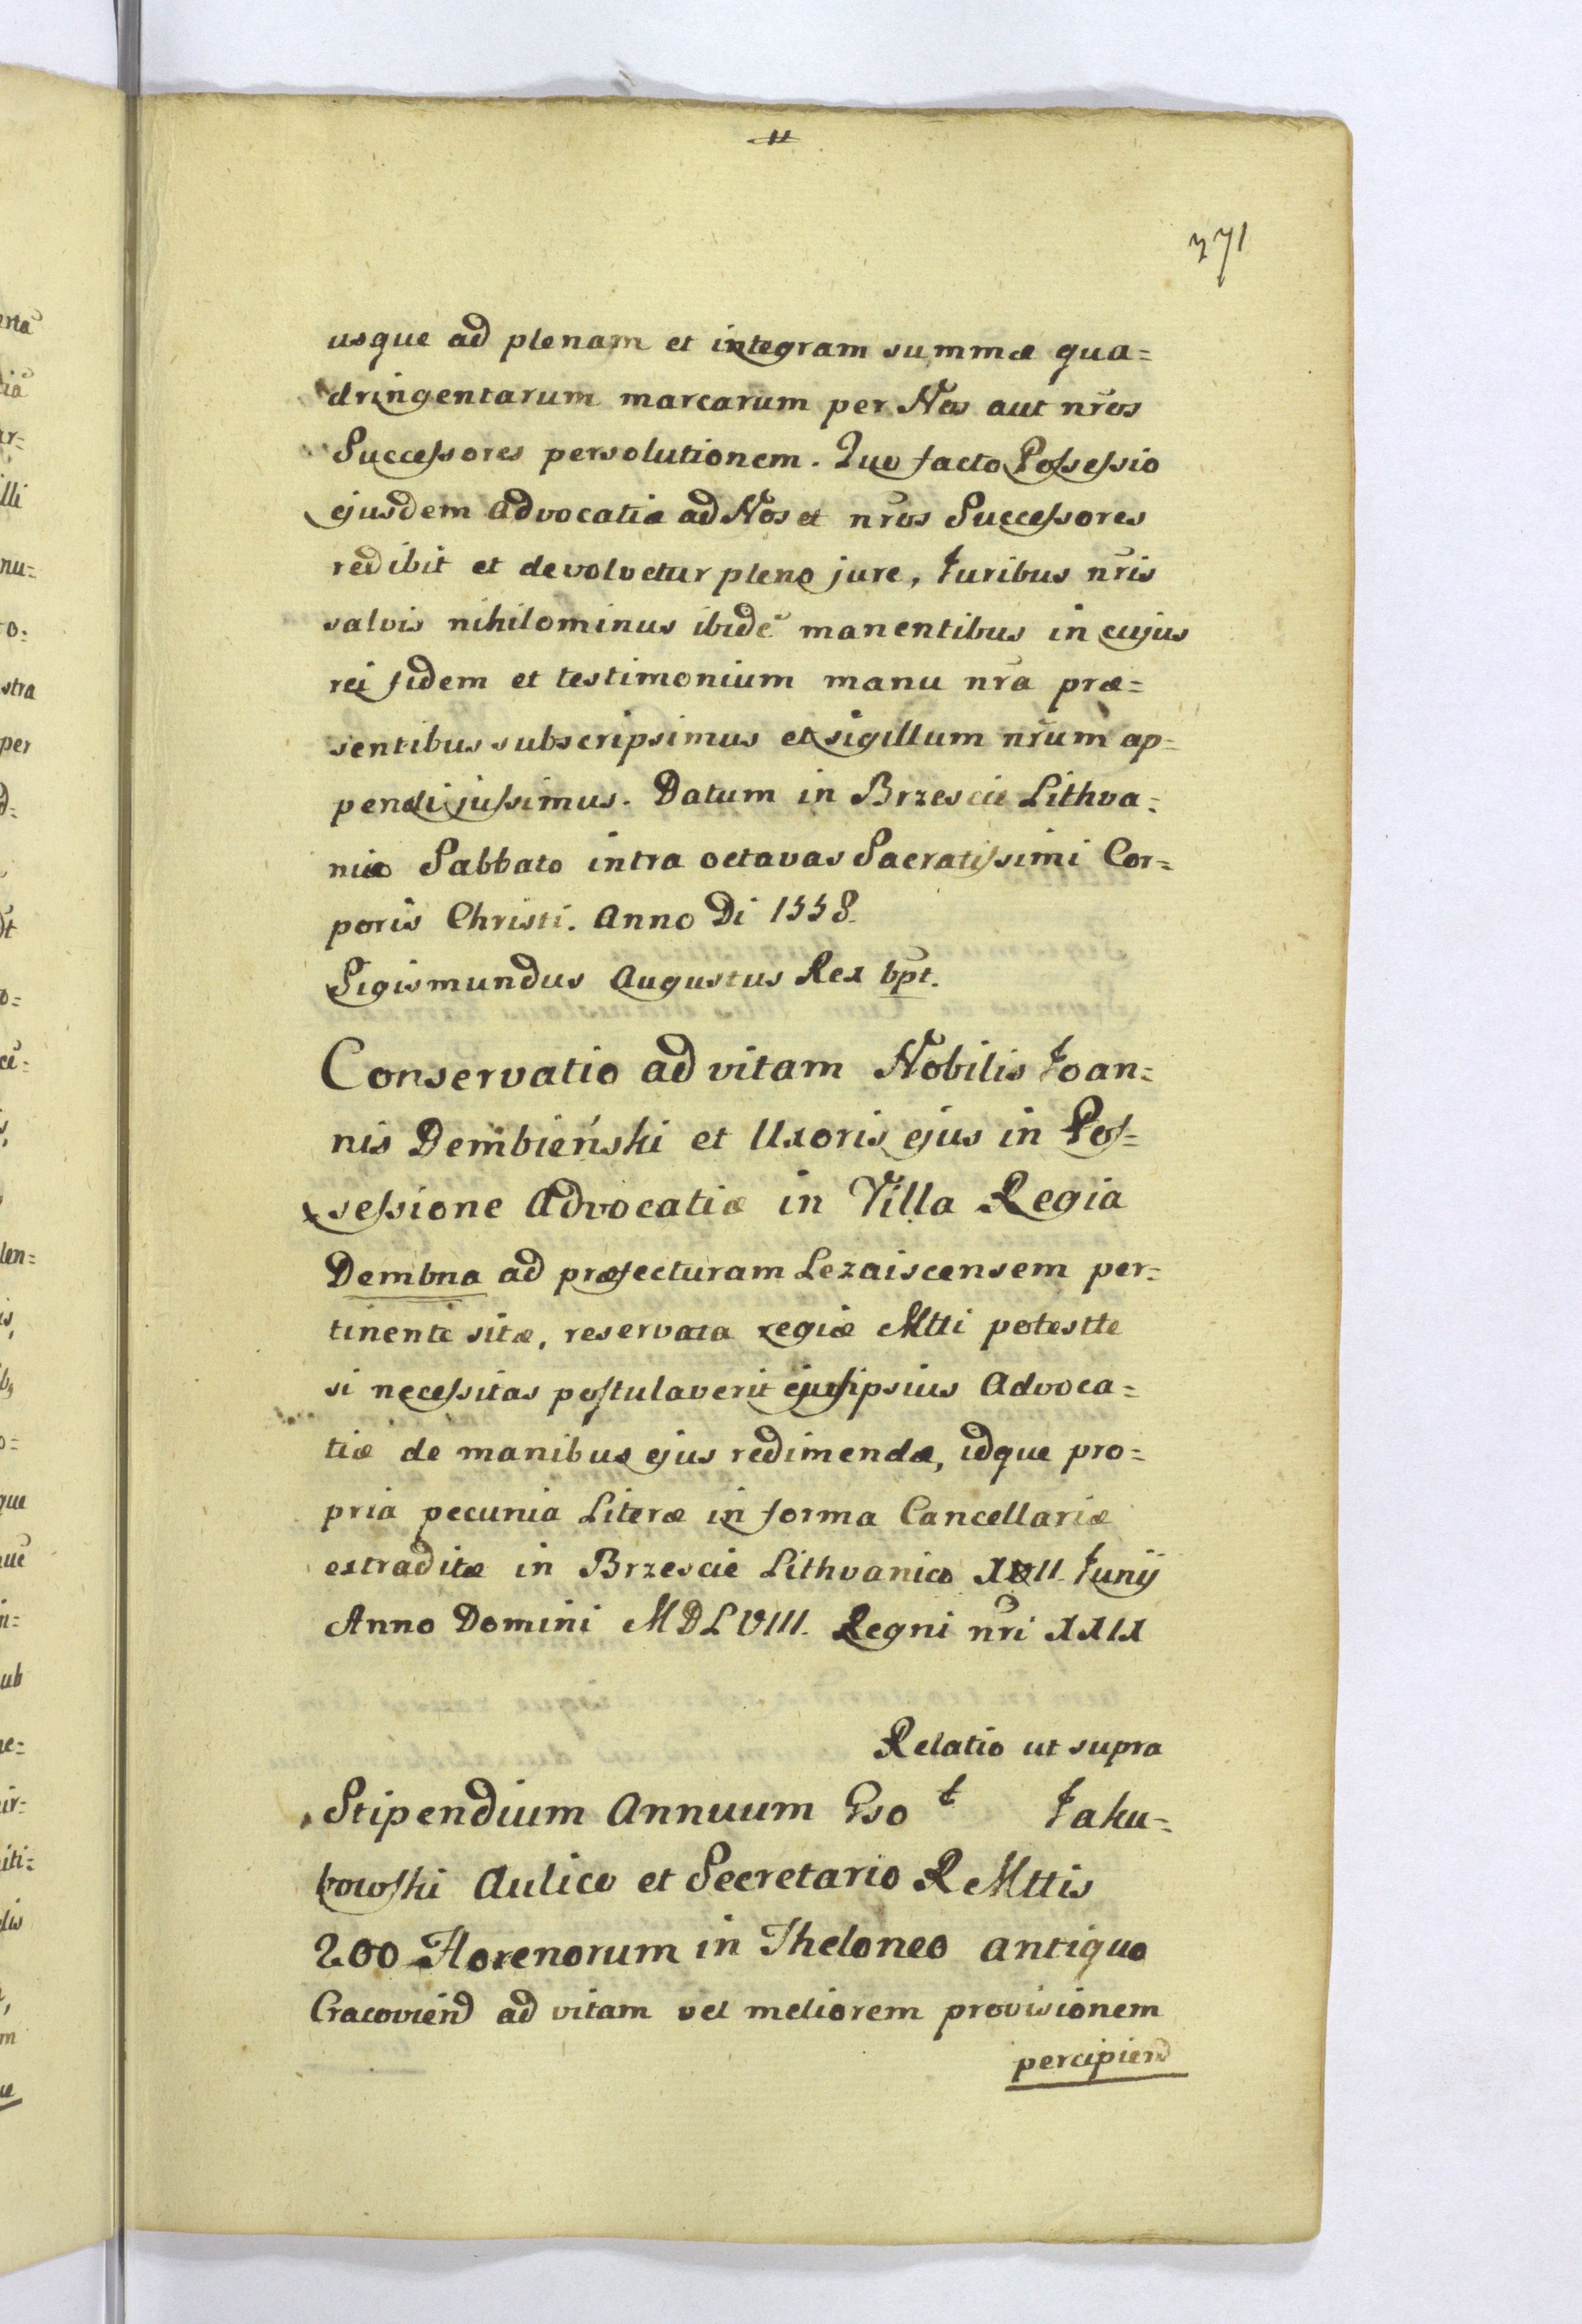 11
271
usque ad plenam et integram summæ qua=
dringentarum marcarum per Nos aut nr̃os
Successores persolutionem. Quo facto Possessio
ejusdem Advocatiæ ad Nos et nr̃os Successores
redibit et devolvetur pleno jure, Juribus nr̃is
salvis nihilominus ibidẽ manentibus in cujus
rei fidem et testimonium manu nr̃a præ=
sentibus subscripsimus et sigillum nr̃um ap=
pendi jussimus. Datum in Brzescie Lithva=
niæ Sabbato intra octavas Sacratissimi Cor=
poris Christi. Anno Di 1558.
Sigismundus Augustus Rex bpt.
Conservatio ad vitam Nobilis Joan=
nis Dembieński et Uxoris ejus in Pos=
sessione Advocatiæ in Villa Regia
Dembna ad præfecturam Lezaiscensem per=
tinente sitæ, reservata regiæ Mtti potestte
si necessitas postulaverit ejusipsius Advoca=
tiæ de manibus ejus redimendæ, idque pro=
pria pecunia Literæ in forma Cancellariæ
extraditæ in Brzescie Lithvanico Junij
Anno Domini MDLVIII. Regni nr̃i XXIX
Relatio ut supra
Stipendium Annuum Gso t Jaku=
bowski Aulico et Secretario R Mttis
200 Florenorum in Theloneo antiquo
Cracoviend ad vitam vel meliorem provisionem
percipiend